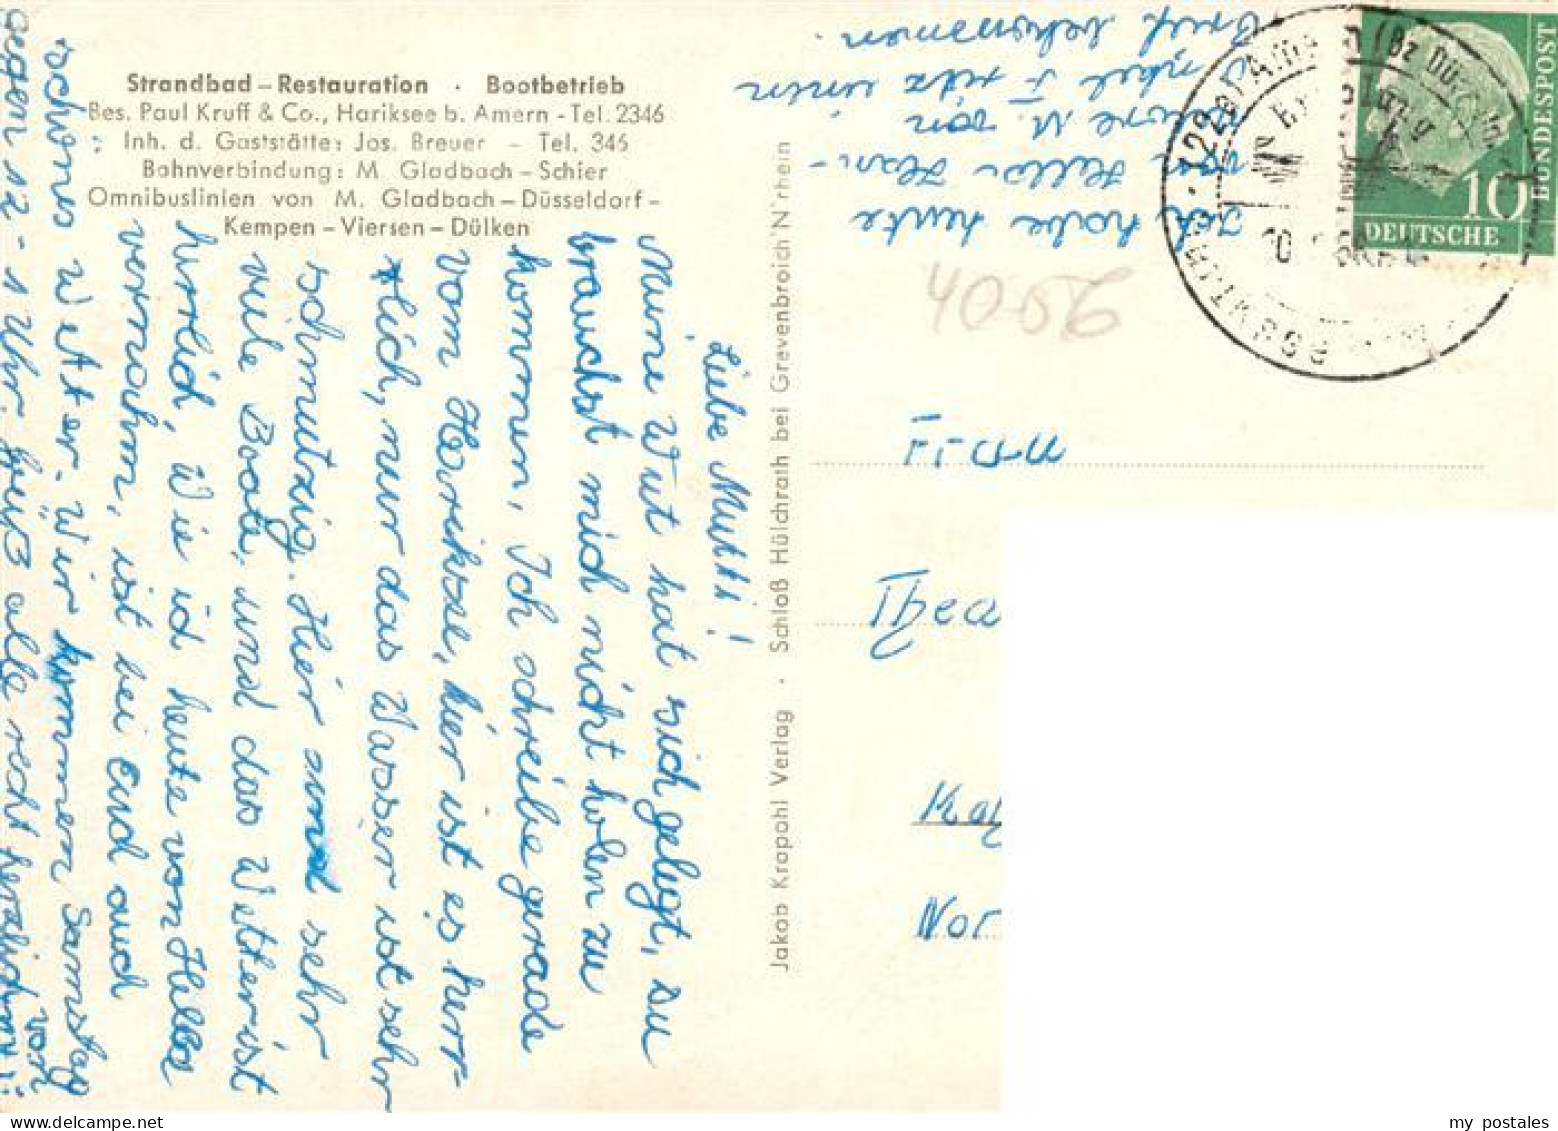 Strandbad – Restauration · Bootbetrieb
Bes. Paul Kruff & Co., Hariksee b. Amern - Tel. 2346
Inh. d. Gaststätte: Jos. Breuer – Tel. 346
Bahnverbindung: M. Gladbach – Schier
Omnibuslinien von M. Gladbach – Düsseldorf –
Kempen – Viersen – Dülken
Liebe Mutti!
Meine Wut hat sich gelegt, Du
brauchst mich nicht holen zu
kommen, Ich schreibe gerade
vom Hariksee, hier ist es herr-
lich, nur das Wasser ist sehr
schmutzig. Hier sind sehr
viele Boote, und das Wetter ist
herrlich, Wie ich heute von Hella
vernahm, ist bei Euch auch
schönes Wetter. Wir kommen Samstag
gegen 12 - 1 Uhr. Grüß alle recht herzlich
von
Jakob Krapohl Verlag · Schloß Hülchrath bei Grevenbroich N'rhein
Ich habe heute
von Hella Han-
M. von
Fritz einen
Brief bekommen.
4056
DEUTSCHE
BUNDESPOST
10
Frau
Thea
Nor
my postales